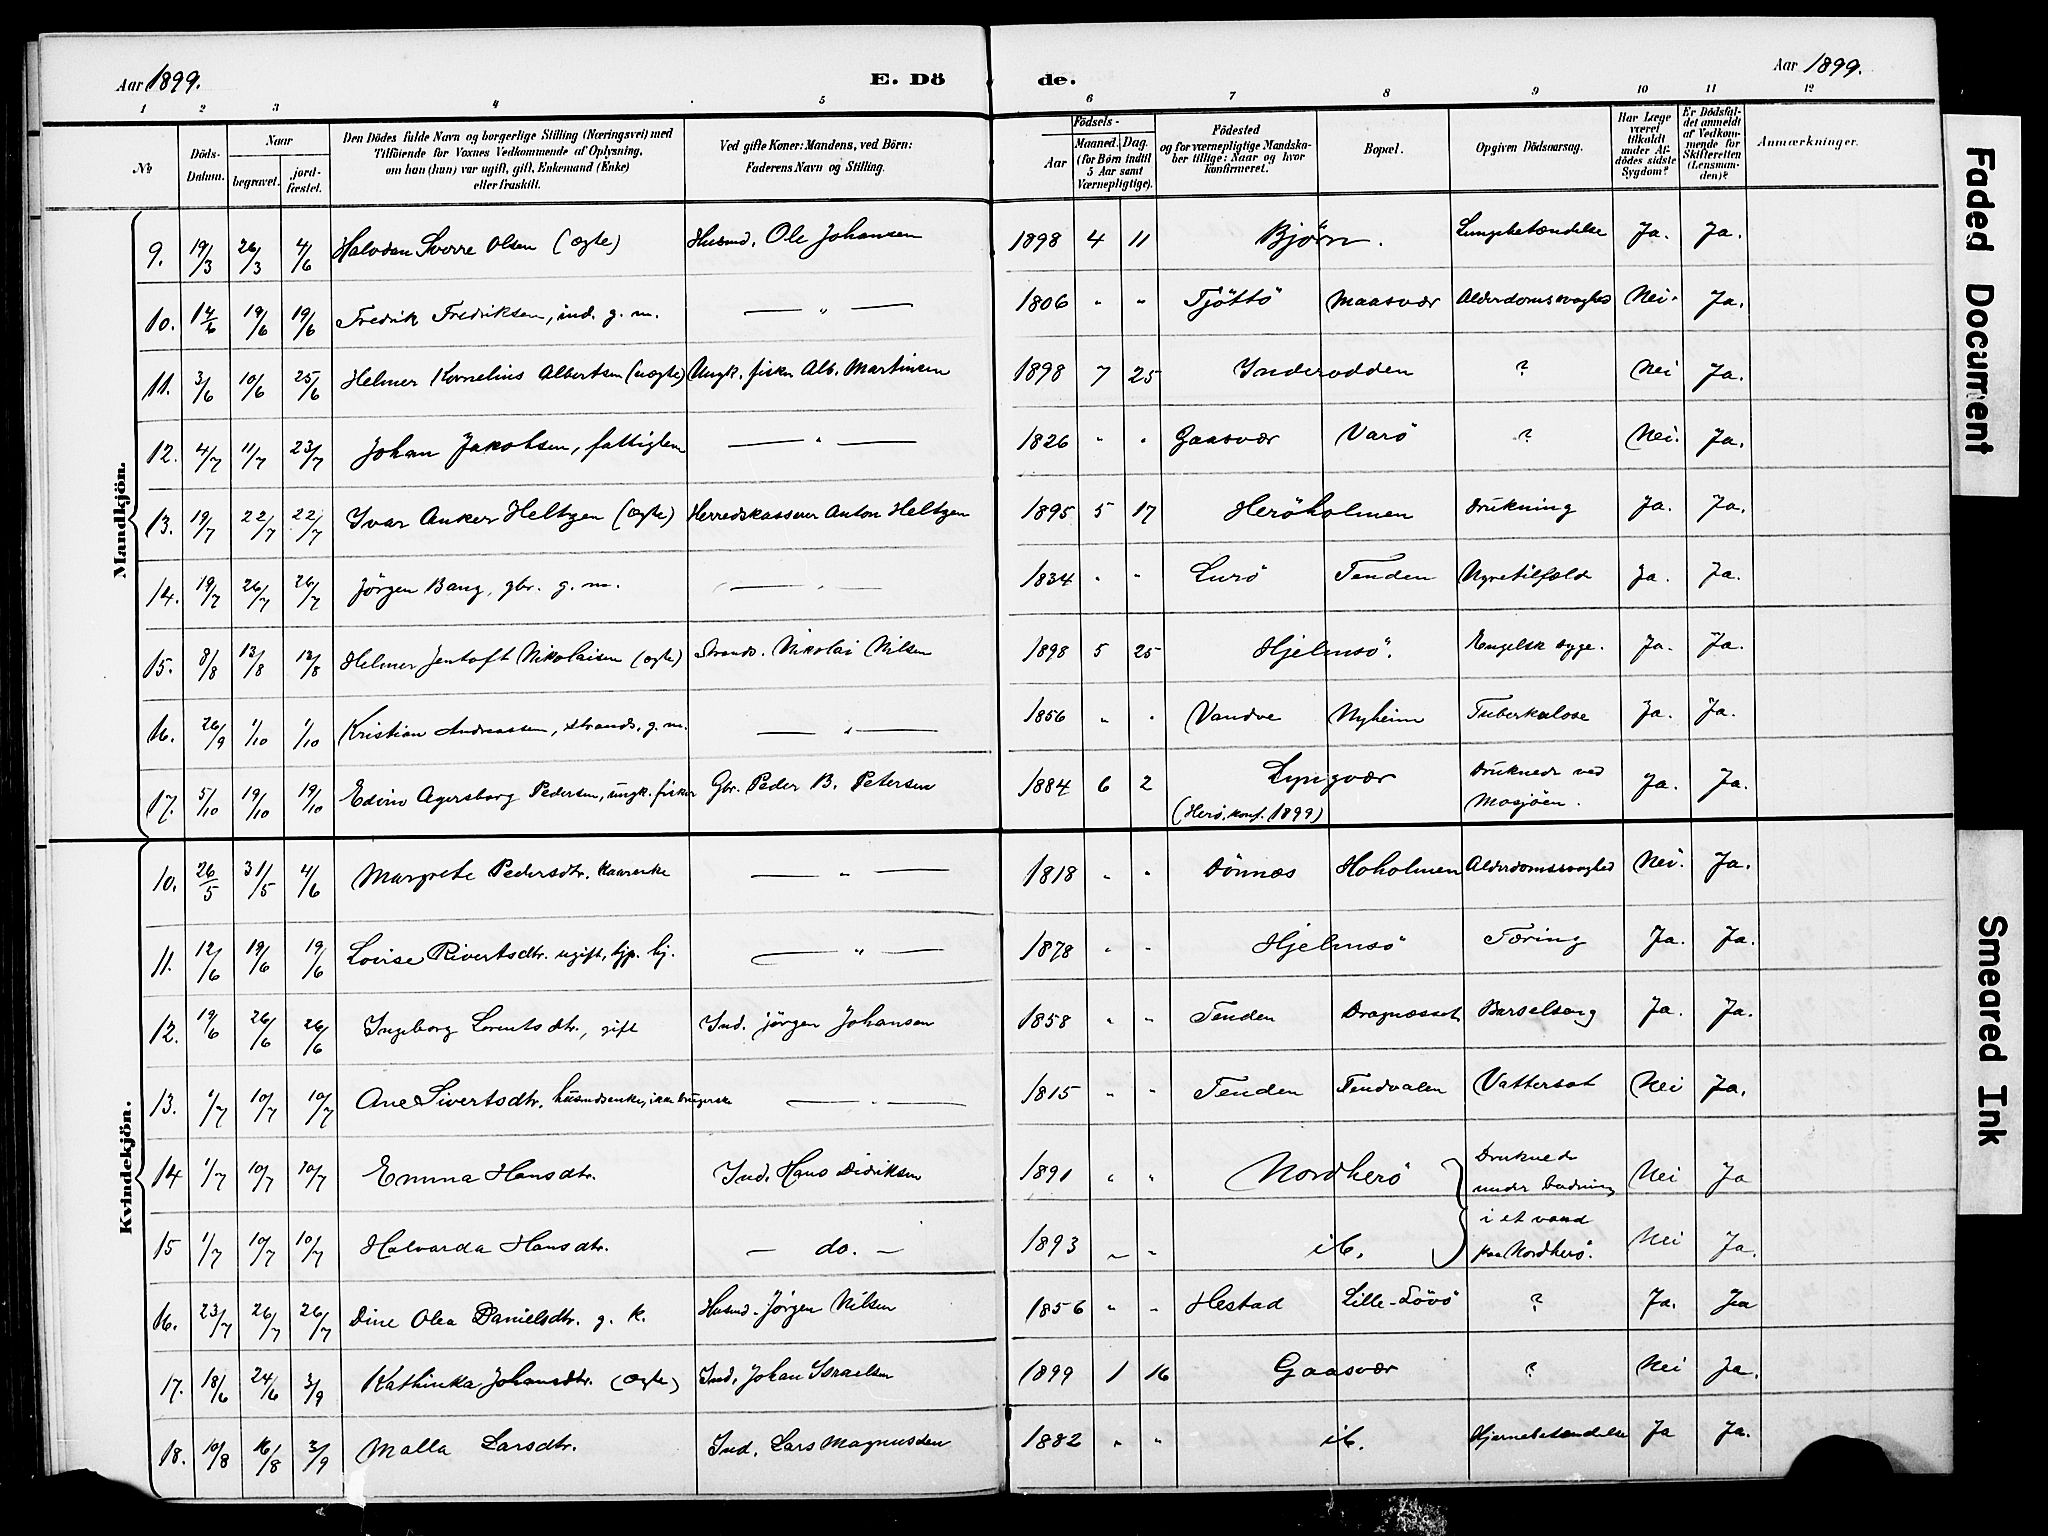 Aar 1899. E. Dö de. Aar 1899.
1 2 3 4 5 6 7 8 9 10 11 12
No Döds-Datum. Naar begravet. jordfæstet. Den Dödes fulde Navn og borgerlige Stilling (Næringsvei) med Tilföiende for Voxnes Vedkommende af Oplysning, om han (hun) var ugift, gift, Enkemand (Enke) eller fraskilt. Ved gifte Koner: Mandens, ved Börn: Faderens Navn og Stilling. Födsels- Aar Maaned. Dag. (for Börn indtil 5 Aar samt Værnepligtige). Födested og for værnepligtige Mandskaber tillige: Naar og hvor konfirmeret. Bopæl. Opgiven Dödsaarsag. Har Læge været tilkaldt under Afdödes sidste Sygdom? Er Dödsfaldet anmeldt af Vedkommende for Skifteretten (Lensmanden)? Anmærkninger.
Mandkjön.
9. 19/3 26/3 4/6 Halvdan Sverre Olsen (ægte) Husmd. Ole Johansen 1898 4 11 Bjørn. Lungebetændelse Ja. Ja.
10. 14/6 19/6 19/6 Fredrik Fredriksen, ind. g. m. — " — 1806 " " Tjöttö Maasvær Alderdomssvaghed Nei. Ja.
11. 3/6 10/6 25/6 Helmer Kornelius Albertsen (uægte) Ungk. fisker Alb. Martinsen 1898 7 25 Inderodden ? Nei Ja.
12. 4/7 11/7 23/7 Johan Jakobsen, fattiglem — " — 1826 " " Gaasvær Varö ? Nei. Ja.
13. 19/7 22/7 22/7 Ivar Anker Heltzen (ægte) Herredskasserer Anton Heltzen 1895 5 17 Heröholmen Drukning Ja. Ja.
14. 19/7 26/7 26/7 Jörgen Bang, gbr. g. m. — " — 1834 " " Lurö Tenden Nyretilfælde Ja. Ja.
15. 8/8 13/8 13/8 Helmer Jentoft Nikolaisen (ægte) Strands. Nikolai Nilsen 1898 5 25 Hjelmsö. Engelsk syge. Ja. Ja.
16. 26/9 1/10 1/10 Kristian Andreassen, strands. g. m. — " — 1856 " " Vandve Nyheim Tuberkulose Ja. Ja.
17. 5/10 19/10 19/10 Edvin Agersborg Pedersen, ungk. fisker Gbr. Peder B. Petersen 1884 6 2 Lyngvær (Herö, konf. 1899) Druknede ved Mosjöen. Ja. Ja.
Kvindekjön.
10. 26/5 31/5 4/6 Margrete Pedersdtr. kaarenke — " — 1818 " " Dönnæs Hoholmen Alderdomssvaghed Nei. Ja.
11. 12/6 19/6 19/6 Lovise Sivertsdtr. ugift, hjp. hj. — " — 1878 " " Hjelmsö Tæring Ja. Ja.
12. 19/6 26/6 26/6 Ingeborg Lorentsdtr., gift Ind. Jörgen Johansen 1858 " " Tenden Dragnæsset Barselseng Ja. Ja.
13. 1/7 10/7 10/7 Ane Sivertsdtr. husmdsenke, ikke brugerske — " — 1815 " " Tenden Tendvalen Vattersot Nei Ja.
14 1/7 10/7 10/7 Emma Hansdtr. Ind. Hans Didriksen 1891 " " Nordherö Druknede under badning Nei Ja
15 1/7 10/7 10/7 Halvarda Hansdtr. — do. — 1893 " " ib. i et vand paa Nordherö. Nei Ja.
16. 23/7 26/7 26/7 Dine Olea Danielsdtr. g. k. Husmd. Jörgen Nilsen 1856 " " Hestad Lille-Sövö ? Ja. Ja
17. 18/6 24/6 3/9 Kathinka Johansdtr. (ægte) Ind. Johan Israelsen 1899 1 16 Gaasvær ? Nei Ja.
18. 10/8 16/8 3/9 Malla Larsdtr. Ind. Lars Magnussen 1882 " " ib. Hjernebetændelse Ja Ja.
Faded Document
Smeared Ink